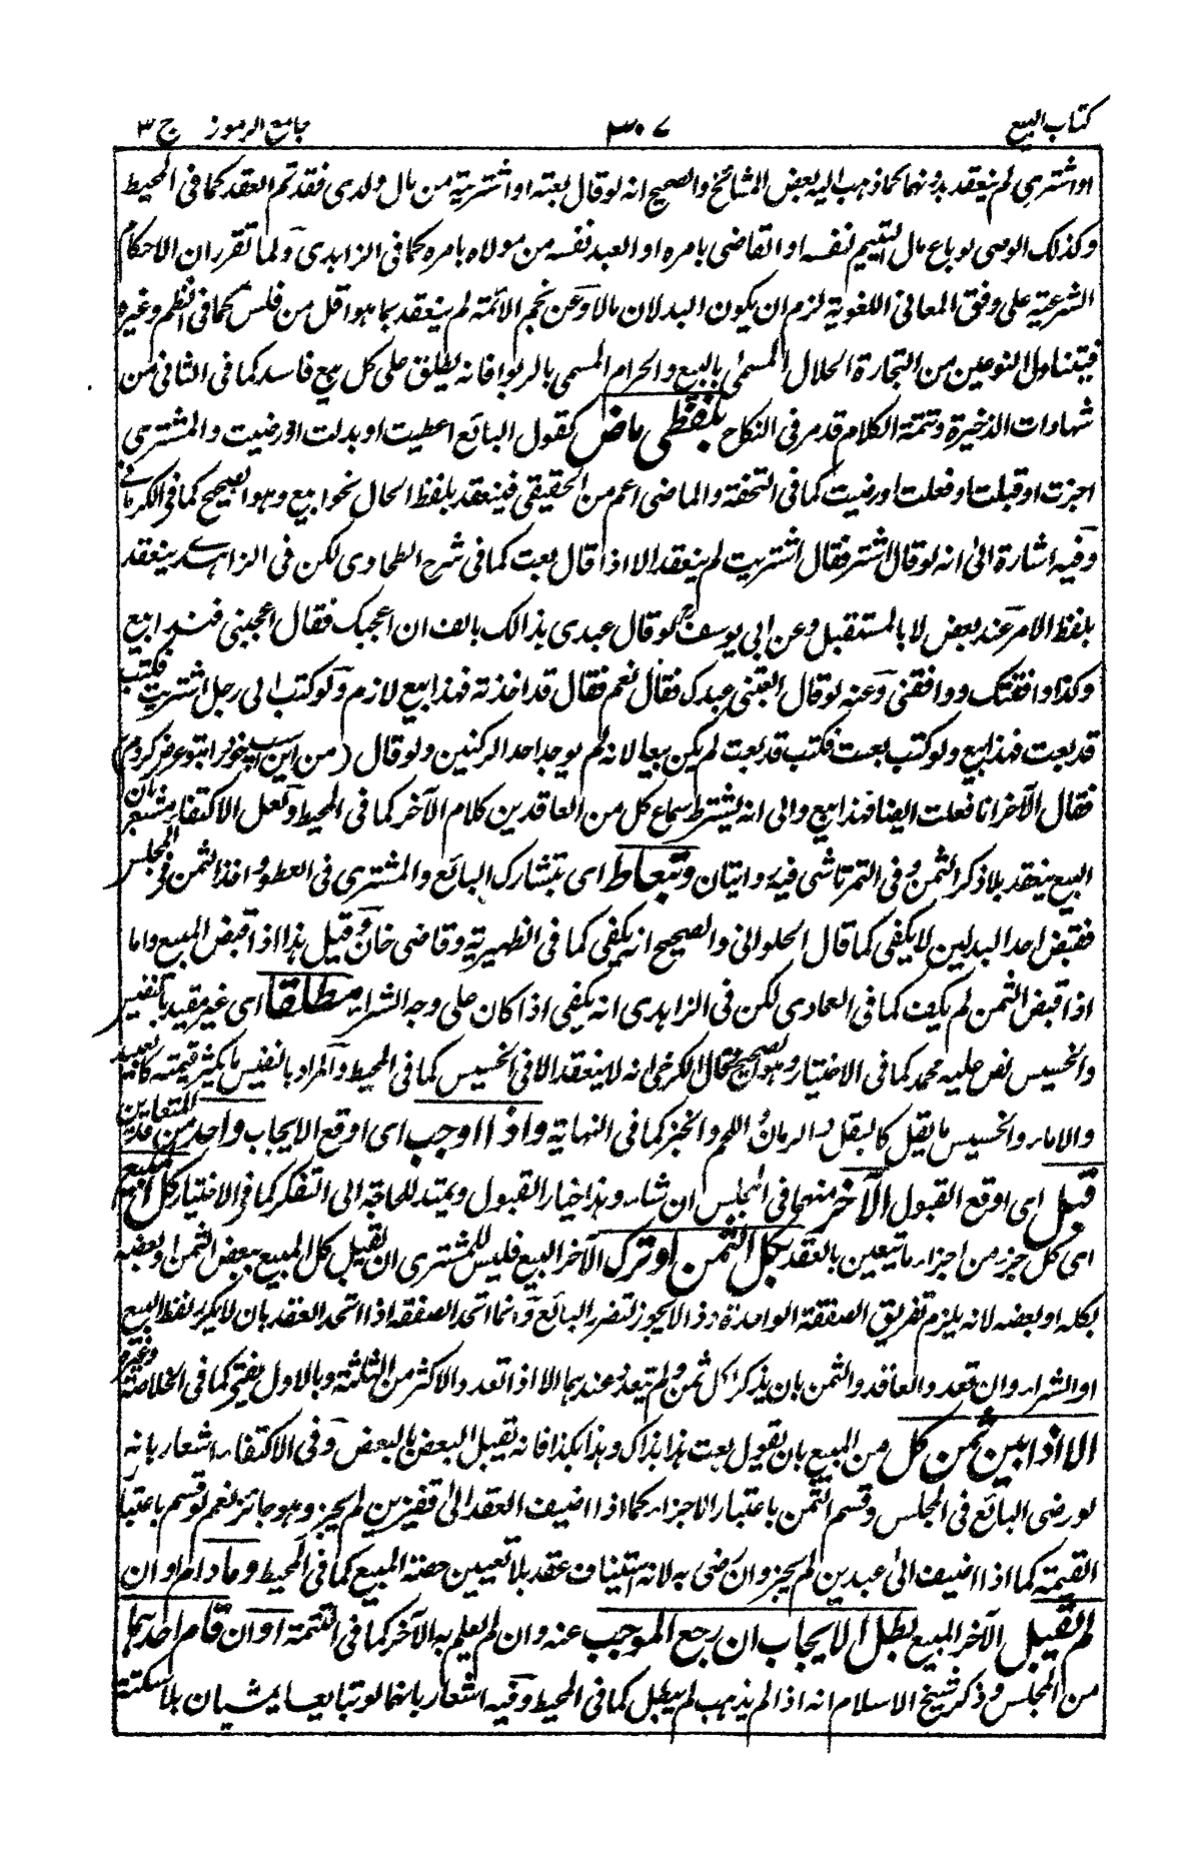 كتاب البيع ٣٠٧ جامع الرموز ج ٣
او اشترى لم ينعقد بدونهما كما ذهب اليه بعض المشائخ والصحيح انه لو قال بعته او اشتريته من مال ولدى فقد تم العقد كما فى المحيط
وكذلك الوصى لو باع مال اليتيم لنفسه او القاضى بامره او العبد نفسه من مولاه بامره كما فى الزاهدى ولما تقرر ان الاحكام
الشرعية على وفق المعانى اللغوية لزم ان يكون البدلان مالا وعن نجم الائمة لم ينعقد بما هو اقل من فلس كما فى النظم وغيره
فيتناول النوعين من التجارة الحلال المسمى بالبيع والحرام المسمى بالربوا فانه يطلق على كل بيع فاسد كما فى الثانى من
شهادات الذخيرة وتتمة الكلام قد مر فى النكاح بلفظى ماض كقول البائع اعطيت او بدلت او رضيت والمشترى
اجزت او قبلت او فعلت او رضيت كما فى التحفة والماضى اعم من الحقيقى فينعقد بلفظ الحال نحو ابيع وهو الصحيح كما فى الكرمانى
وفيه اشارة الى انه لو قال اشتر فقال اشتريت لم ينعقد الا اذا قال بعت كما فى شرح الطحاوى لكن فى الزاهدى ينعقد
بلفظ الامر عند بعض لا بالمستقبل وعن ابى يوسف لو قال عبدى بذالك بالف ان اعجبك فقال اعجبنى فهذا بيع
وكذا وافقتك ووافقنى وعنه لو قال ابعتنى عبدك فقال نعم فقال قد اخذته فهذا بيع لازم ولو كتب الى رجل اشتريت فكتب
قد بعت فهذا بيع ولو كتب بعت فكتب قد بعت لم يكن بيعا لانه لم يوجد احد الركنين ولو قال (من اين اسپ خود را بتو عرض كردم)
فقال الآخر انا فعلت ايضا فهذا بيع والى انه يشترط سماع كل من العاقدين كلام الآخر كما فى المحيط ولعل الاكتفاء مشعر بان
البيع ينعقد بلا ذكر الثمن وفى التمرتاشى فيه روايتان وتعاط اى بتشارك البائع والمشترى فى العطو واخذ الثمن فى المجلس
فقبض احد البدلين لا يكفى كما قال الحلوانى والصحيح انه يكفى كما فى الظهيرية وقاضى خان وقيل هذا اذا قبض المبيع واما
اذا قبض الثمن لم يكف كما فى العمادى لكن فى الزاهدى انه يكفى اذا كان على وجه الشراء مطلقا اى غير مقيد بالنفيس
والخسيس نص عليه محمد كما فى الاختيار وهو الصحيح فقال الكرخى انه لا ينعقد الا فى الخسيس كما فى المحيط والمراد بالنفيس ما يكثر قيمته كالعبيد
والاماء والخسيس ما يقل كالبقل والرمان واللحم والخبز كما فى النهاية واذا اوجب اى اوقع الايجاب واحد من المتعاقدين
قبل اى اوقع القبول الآخر منهما فى المجلس ان شاء وهذا خيار القبول ويمتد للحاجة الى التفكر كما فى الاختيار كل المبيع
اى كل جزء من اجزاء ما يتعين بالعقد بكل الثمن او ترك الآخر البيع فليس للمشترى ان يقبل كل المبيع ببعض الثمن او بعضه
بكله او بعضه لانه يلزم تفريق الصفقة الواحدة وذا لا يجوز لتضرر البائع وانما اتحد الصفقة اذا اتحد العقد بان لا يكرر لفظ البيع
او الشراء وان تعدد والعاقد والثمن بان يذكر كل ثمن ولم يتعدد عندهما الا اذا تعدد والاكثر من الثلثة وبالاول يفتى كما فى الخلاصة وغيره
الا اذا بين ثمن كل من المبيع بان يقول بعت هذا بذاك وهذا بكذا فانه يقبل البعض بالبعض وفى الاكتفاء اشعار بانه
لو رضى البائع فى المجلس وقسم الثمن باعتبار الاجزاء كما اذا اضيف العقد الى قفيزين لم يجز وهو جائز نعم لو قسم باعتبار
القيمة كما اذا اضيف الى عبدين لم يجز وان رضى به لانه استيناف عقد بلا تعيين حصة المبيع كما فى المحيط وما دام او ان
لم يقبل الآخر المبيع بطل الايجاب ان رجع الموجب عنه وان لم يعلم به الآخر كما فى التتمة او ان قام احدهما
من المجلس وذكر شيخ الاسلام انه اذا لم يذهب لم يبطل كما فى المحيط وفيه اشعار بانهما لو تبايعا يمشيان بلا سكتة